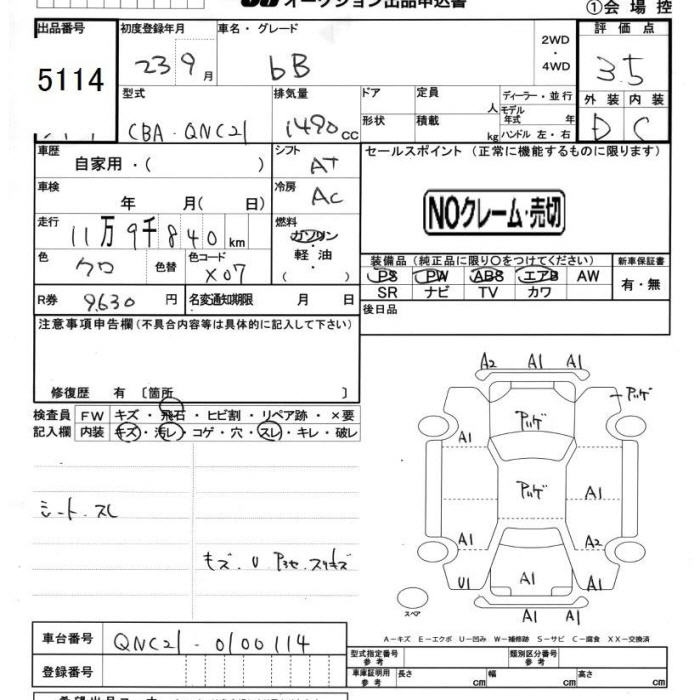 オークション出品申込書
①会場控
出品番号
5114
初度登録年月
23 9 月
車名・グレード
bB
2WD
・
4WD
評価点
3.5
外装 内装
D C
型式
CBA-QNC21
排気量
1490 cc
ドア
形状
定員
人
積載
kg
ディーラー・並行
モデル
年式 年
ハンドル 左・右
車歴
自家用・( )
シフト
AT
セールスポイント (正常に機能するものに限ります)
車検
年 月( 日)
冷房
AC
NOクレーム・売切
走行
11万9千840 km
燃料
ガソリン
・
軽油
( )
色
クロ
色替
色コード
X07
装備品(純正品に限り○をつけてください)
PS PW ABS エアB AW
SR ナビ TV カワ
新車保証書
有・無
R券
9,630 円
名変通知期限 月 日
後日品
注意事項申告欄(不具合内容等は具体的に記入して下さい)
修復歴 有 〔箇所 〕
検査員
記入欄
FW キズ・飛石・ヒビ割・リペア跡・×要
内装 キズ・汚レ・コゲ・穴・スレ・キレ・破レ
シート.スレ
キズ.U
A2 A1 A1
アゲ
アゲ
A1
アゲ
A1
A1
A2
U1
A1
A1
A1 A1
スペア
A-キズ E-エクボ U-凹み W-補修跡 S-サビ C-腐食 XX-交換済
車台番号
QNC21-0100114
登録番号
型式指定番号
参考
類別区分番号
参考
車庫証明用
参考
長さ cm
幅 cm
高さ cm